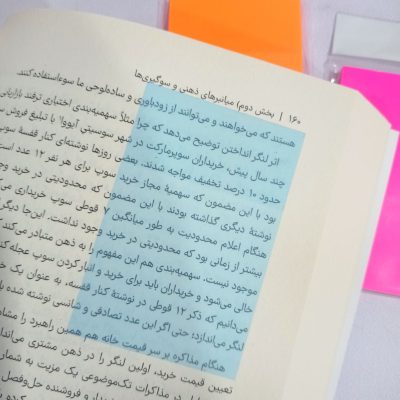 ۱۶۰ | بخش دوم) میانبرهای ذهنی و سوگیری‌ها
هستند که می‌خواهند و می‌توانند از زودباوری و ساده‌لوحی ما سوءاستفاده کنند.
اثر لنگر انداختن توضیح می‌دهد که چرا مثلاً سهمیه‌بندی اختیاری ترفند بازاریابی
چند سال پیش، خریداران سوپرمارکت در شهر سوسیتی آیووا با تبلیغ فروش سو
حدود ۱۰ درصد تخفیف مواجه شدند. بعضی روزها نوشته‌ای کنار قفسهٔ سوپ
بود با این مضمون که سهمیهٔ مجاز خرید سوپ برای هر نفر ۱۲ عدد است
نوشتهٔ دیگری گذاشته بودند با این مضمون که محدودیتی در خرید وجو
هنگام اعلام محدودیت به طور میانگین ۷ قوطی سوپ خریداری می
بیشتر از زمانی بود که محدودیتی در خرید وجود نداشت. این‌جا دیگر
موجود نیست. سهمیه‌بندی هم این مفهوم را به ذهن متبادر می‌کند که
خالی می‌شود و خریداران باید برای خرید و انبار کردن سوپ عجله کن
می‌دانیم که ذکر ۱۲ قوطی در نوشتهٔ کنار قفسه، به عنوان یک
لنگر می‌اندازد؛ حتی اگر این عدد تصادفی و شانسی نوشته شده با
هنگام مذاکره بر سر قیمت خانه هم همین راهبرد را مشا
تعیین قیمت خرید، اولین لنگر را در ذهن مشتری می‌اندا
در مذاکرات تک‌موضوعی یک مزیت به شما
و فروشنده حل‌وفصل